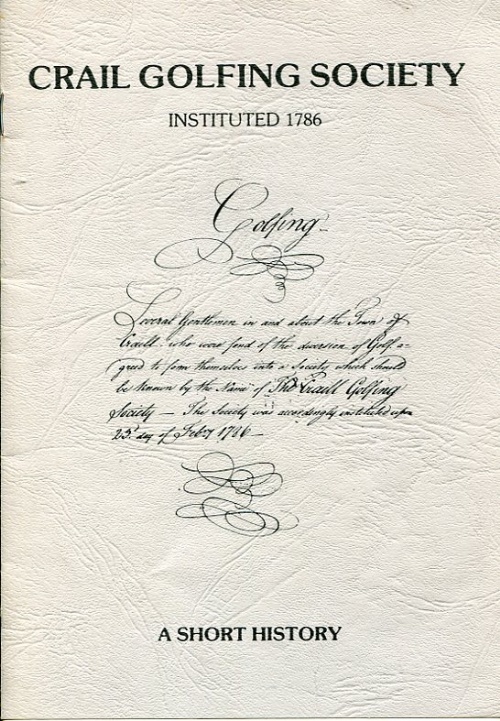 CRAIL GOLFING SOCIETY
INSTITUTED 1786
Golfing
Several Gentlemen in and about the Town of
Craill who were fond of the diversion of Golf a-
greed to form themselves into a Society which should
be known by the Name of The Craill Golfing
Society — The Society was accordingly instituted upon
23d. day of Febry 1786 —
A SHORT HISTORY